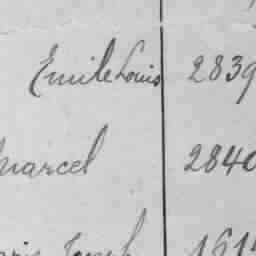 Emile Louis 2839
Marcel 2840
Joseph 161